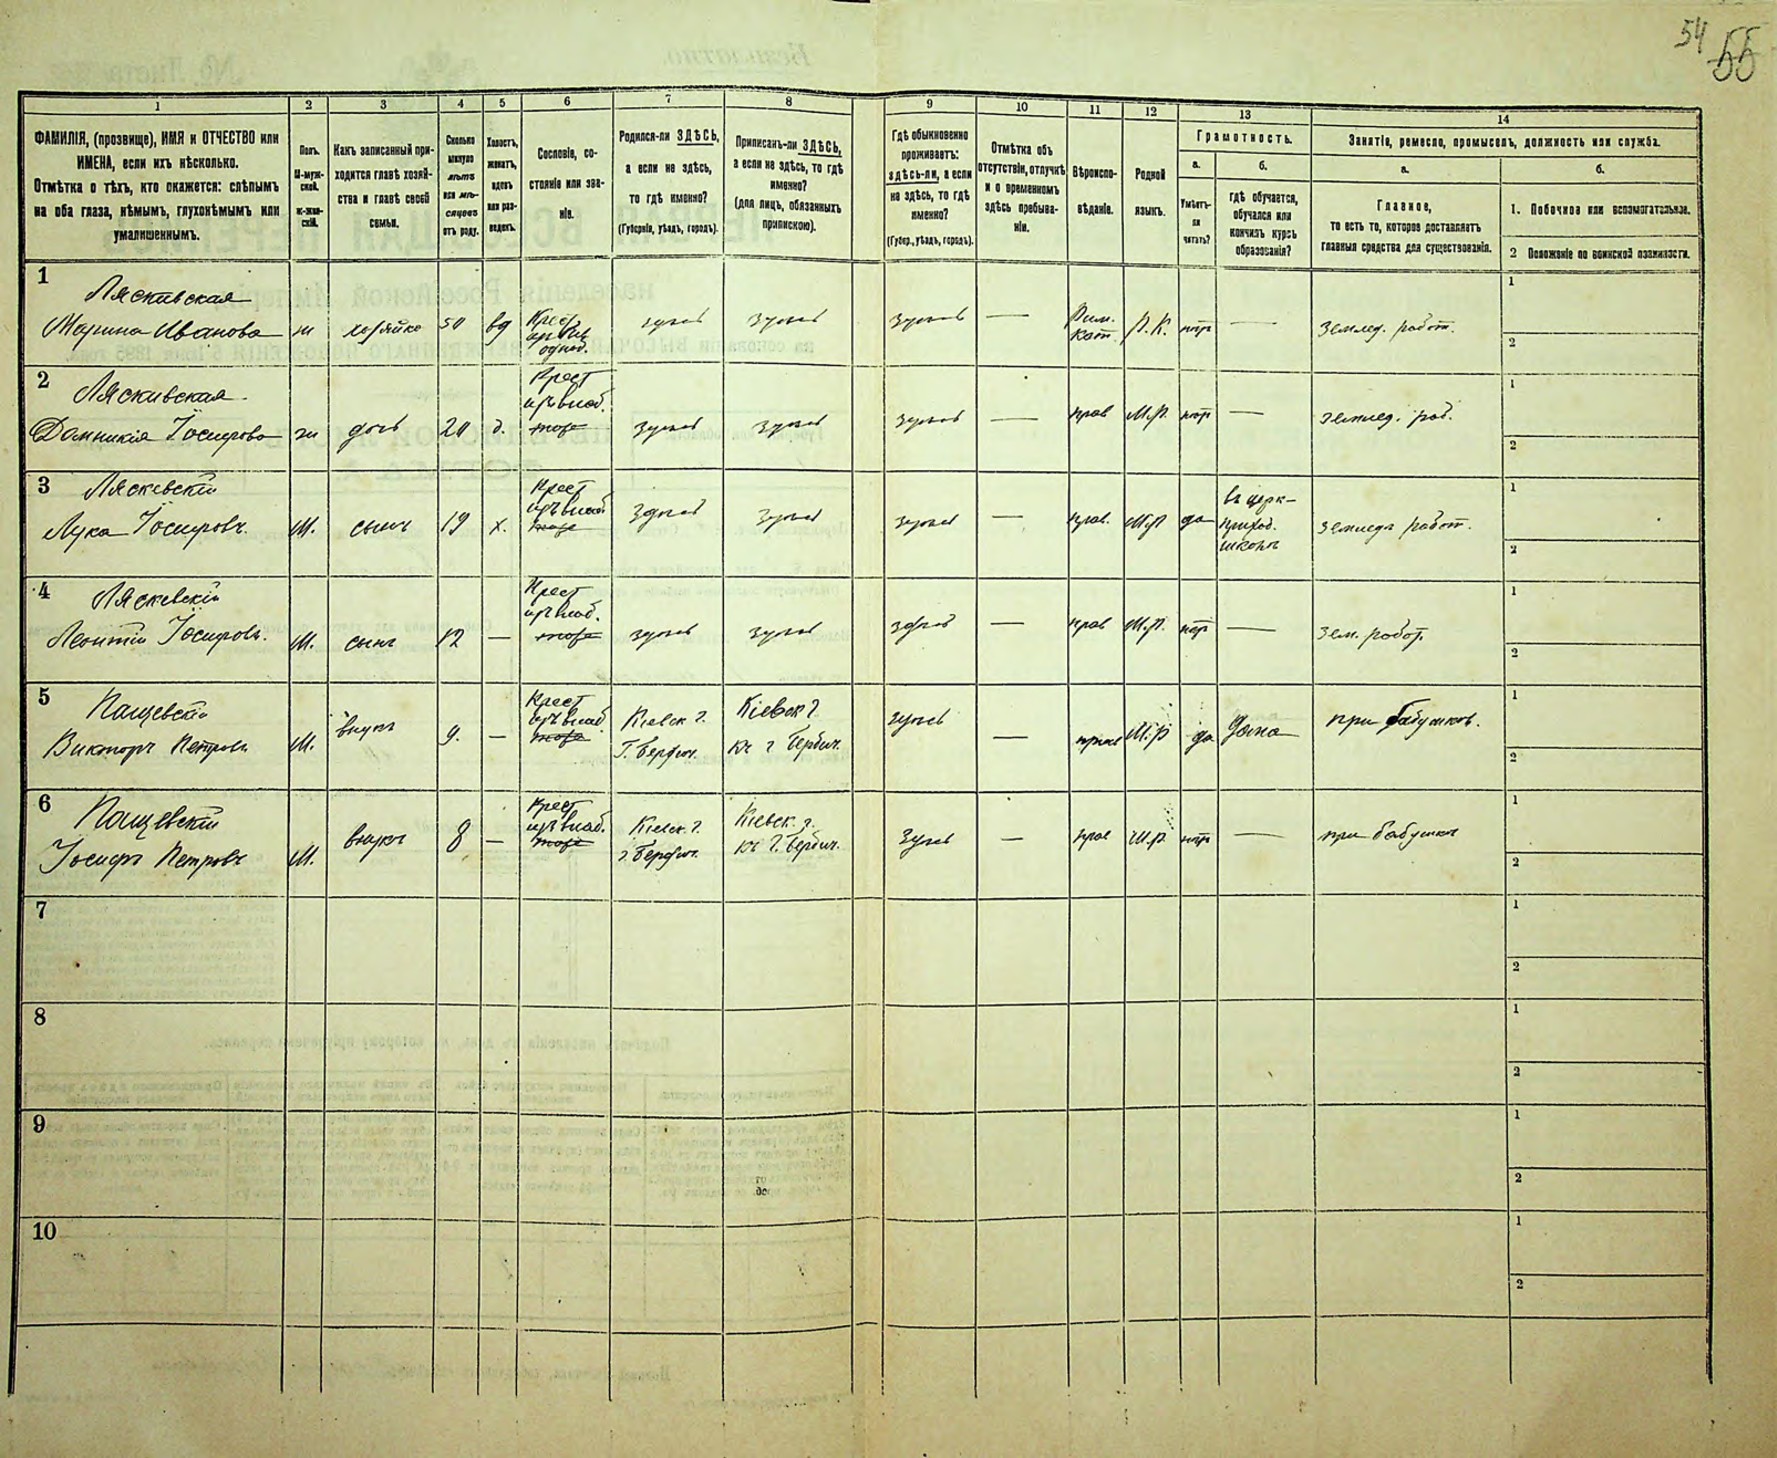 54 55
1 2 3 4 5 6 7 8 9 10 11 12 13 14
ФАМИЛІЯ, (прозвище), ИМЯ и ОТЧЕСТВО или
ИМЕНА, если ихъ нѣсколько.
Отмѣтка о тѣхъ, кто окажется: слѣпымъ
на оба глаза, нѣмымъ, глухонѣмымъ или
умалишеннымъ.
Полъ.
М-муж-
ской.
ж-жен-
скій.
Какъ записанный при-
ходится главѣ хозяй-
ства и главѣ своей
семьи.
Сколько
минуло
лѣтъ
или мѣ-
сяцевъ
отъ роду.
Холостъ,
женатъ,
вдовъ
или раз-
веденъ.
Сословіе, со-
стояніе или зва-
ніе.
Родился-ли ЗДѢСЬ,
а если не здѣсь,
то гдѣ именно?
(Губернія, уѣздъ, городъ).
Приписанъ-ли ЗДѢСЬ,
а если не здѣсь, то гдѣ
именно?
(для лицъ, обязанныхъ
припискою).
Гдѣ обыкновенно
проживаетъ:
здѣсь-ли, а если
не здѣсь, то гдѣ
именно?
(Губер., уѣздъ, городъ).
Отмѣтка объ
отсутствіи, отлучкѣ
и о временномъ
здѣсь пребыва-
ніи.
Вѣроиспо-
вѣданіе.
Родной
языкъ.
Грамотность.
а.
Умѣетъ-
ли
читать?
б.
гдѣ обучается,
обучался или
кончилъ курсъ
образованія?
Занятіе, ремесло, промыселъ, должность или служба.
а.
Главное,
то есть то, которое доставляетъ
главныя средства для существованія.
б.
1. Побочное или вспомогательное.
2 Положеніе по воинской повинности.
1
Ляскивская
Марина Иванова ж хозяйка 50 вд Крест. здѣсь здѣсь здѣсь — Рим. Кат. нѣт — землед. работ.
1
2
2
Ляскивская
Домникія Іосифова ж дочь 20 д. Крест изъ влад. тоже здѣсь здѣсь здѣсь — прав М.р. нѣт — землед. раб.
1
2
3
Ляскевскій
Лука Іосифовъ. М. сынъ 19 х. Крест изъ влад. тоже здѣсь здѣсь здѣсь прав. М.р да въ церк-
приход.
школѣ землед. работ.
1
2
4
Ляскевскій
Леонтій Іосифовъ. М. сынъ 12 — Крест изъ влад. тоже здѣсь здѣсь здѣсь — прав М.р. нѣт — зем. работ.
1
2
5
Пащевскій
Викторъ Петровъ М. внукъ 9. — Крест изъ влад. тоже Кіевск г. Г. Бердич. Кіевск г къ г Бердич. здѣсь — прав М.р да Дома при бабушкѣ.
1
2
6
Пащевскій
Іосифъ Петровъ М. внукъ 8 — Крест изъ влад. тоже Кіевск. г. г. Бердич. Кіевск. г. къ г. Бердич. здѣсь — прав М.р. нѣт — при бабушкѣ
1
2
7
1
2
8
1
2
9
1
2
10
1
2